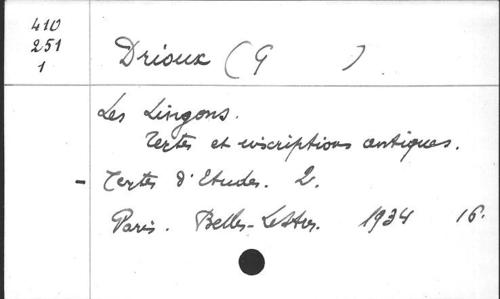 410
251
1
Drioux (G )
Les Lingons.
Textes et inscriptions antiques.
- Textes d'Etudes. 2.
Paris. Belles-Lettres. 1934 16.